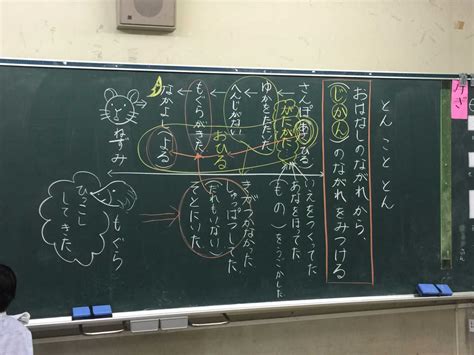 とん こと とん
おはなしのながれから、
(じかん)のながれをみつける
さんぽ(あさ)(ひる)
がたかた
ゆかをたたいた
へんじがない
おひる
もぐらがきた
なかよし(よる)
ねずみ
いえをつくってた
あなをほってた
(もの)をうごかした
きがつかなかった
しゅっぱつしてた
だれもいない
そとにいた
もぐら
ひっこし
してきた